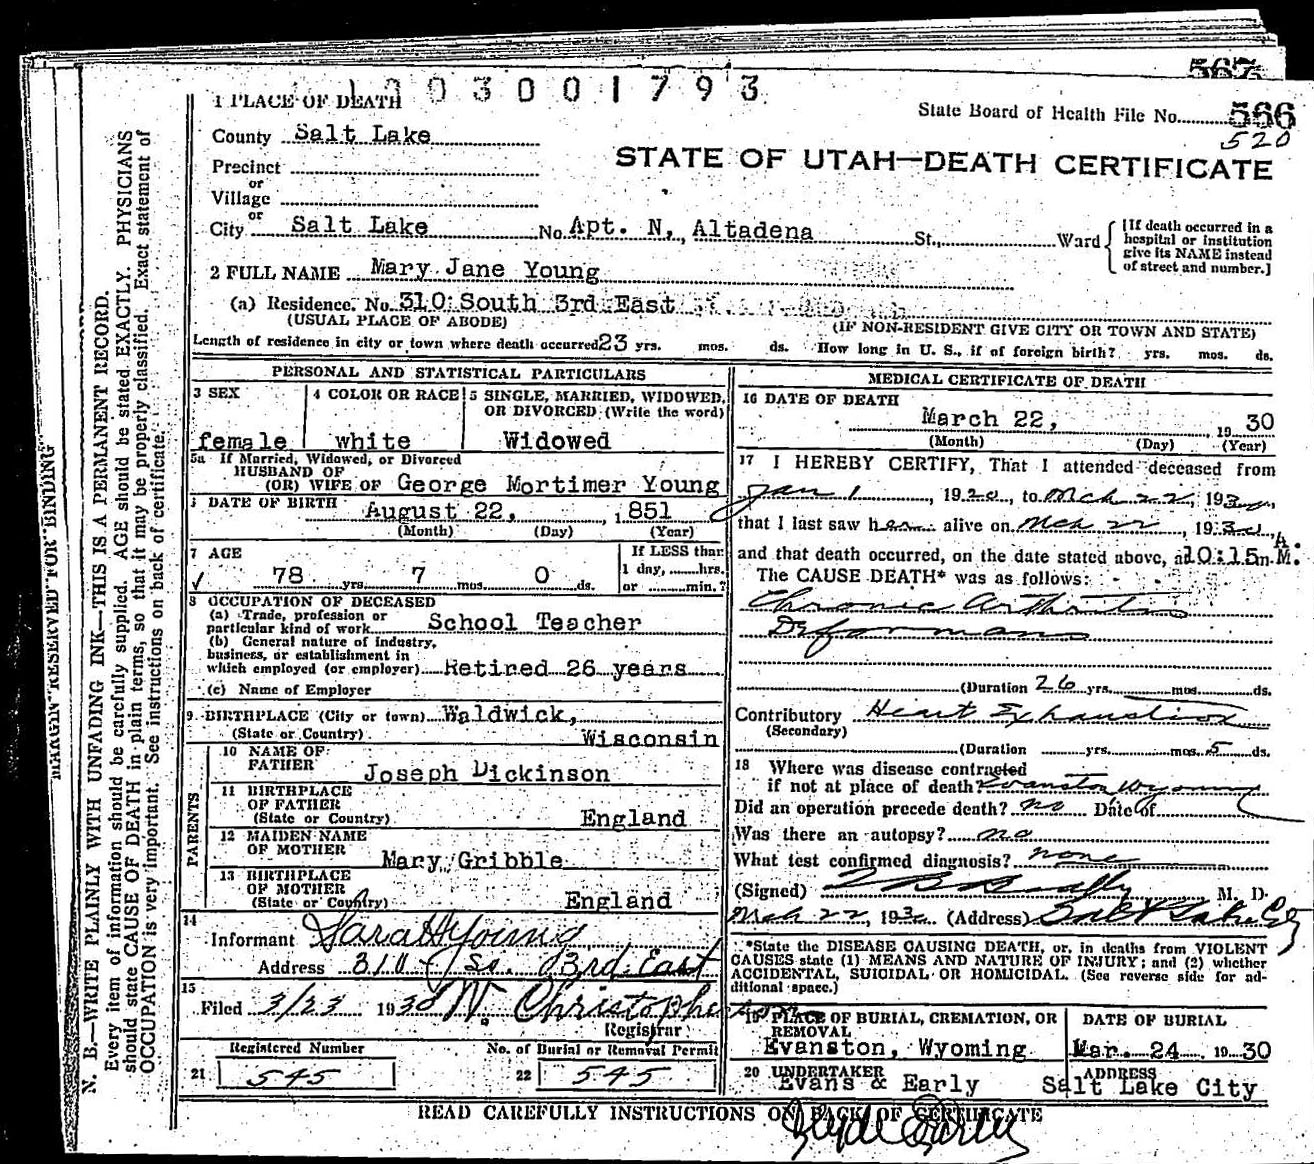 567
1303001793
1 PLACE OF DEATH
State Board of Health File No. 566
520
County Salt Lake
STATE OF UTAH—DEATH CERTIFICATE
Precinct
or
Village
or
City Salt Lake No. Apt. N, Altadena St., Ward
[If death occurred in a hospital or institution give its NAME instead of street and number.]
2 FULL NAME Mary Jane Young
(a) Residence. No. 310 South 3rd East
(USUAL PLACE OF ABODE) (IF NON-RESIDENT GIVE CITY OR TOWN AND STATE)
Length of residence in city or town where death occurred 23 yrs. mos. ds. How long in U. S., if of foreign birth? yrs. mos. ds.
PERSONAL AND STATISTICAL PARTICULARS
3 SEX
female
4 COLOR OR RACE
white
5 SINGLE, MARRIED, WIDOWED, OR DIVORCED (Write the word)
Widowed
5a If Married, Widowed, or Divorced
HUSBAND OF
(OR) WIFE OF George Mortimer Young
DATE OF BIRTH August 22, 1851
(Month) (Day) (Year)
7 AGE
78 yrs. 7 mos. 0 ds.
If LESS than
1 day, hrs.
or min.?
8 OCCUPATION OF DECEASED
(a) Trade, profession or
particular kind of work School Teacher
(b) General nature of industry,
business, or establishment in
which employed (or employer) Retired 26 years
(c) Name of Employer
9 BIRTHPLACE (City or town) Waldwick,
(State or Country) Wisconsin
PARENTS
10 NAME OF
FATHER Joseph Dickinson
11 BIRTHPLACE
OF FATHER
(State or Country) England
12 MAIDEN NAME
OF MOTHER Mary Gribble
13 BIRTHPLACE
OF MOTHER
(State or Country) England
14
Informant Sara H Young
Address 310 So. 3rd East
15
Filed 3/23 1930 W. Christopherson
Registrar
Registered Number
21 545
No. of Burial or Removal Permit
22 545
MEDICAL CERTIFICATE OF DEATH
16 DATE OF DEATH
March 22, 1930
(Month) (Day) (Year)
17 I HEREBY CERTIFY, That I attended deceased from
Jan 1, 1920, to Mch 22, 1930,
that I last saw her alive on Mch 22, 1930,
and that death occurred, on the date stated above, at 10:15 A. M.
The CAUSE DEATH* was as follows:
Chronic Arthritis
Deformans
(Duration 26 yrs. mos. ds.
Contributory Heart Exhaustion
(Secondary)
(Duration yrs. mos. 5 ds.
18 Where was disease contracted
if not at place of death? Evanston Wyoming
Did an operation precede death? no Date of
Was there an autopsy? no
What test confirmed diagnosis? none
(Signed) M. D.
Mch 22 1930 (Address) Salt Lake City
*State the DISEASE CAUSING DEATH, or, in deaths from VIOLENT
CAUSES state (1) MEANS AND NATURE OF INJURY; and (2) whether
ACCIDENTAL, SUICIDAL OR HOMICIDAL. (See reverse side for ad-
ditional space.)
19 PLACE OF BURIAL, CREMATION, OR
REMOVAL
Evanston, Wyoming
DATE OF BURIAL
Mar. 24 1930
20 UNDERTAKER
Evans & Early
ADDRESS
Salt Lake City
READ CAREFULLY INSTRUCTIONS ON BACK OF CERTIFICATE
Clyde Early
MARGIN RESERVED FOR BINDING
N. B.—WRITE PLAINLY WITH UNFADING INK—THIS IS A PERMANENT RECORD.
Every item of information should be carefully supplied. AGE should be stated EXACTLY. PHYSICIANS
should state CAUSE OF DEATH in plain terms, so that it may be properly classified. Exact statement of
OCCUPATION is very important. See instructions on back of certificate.